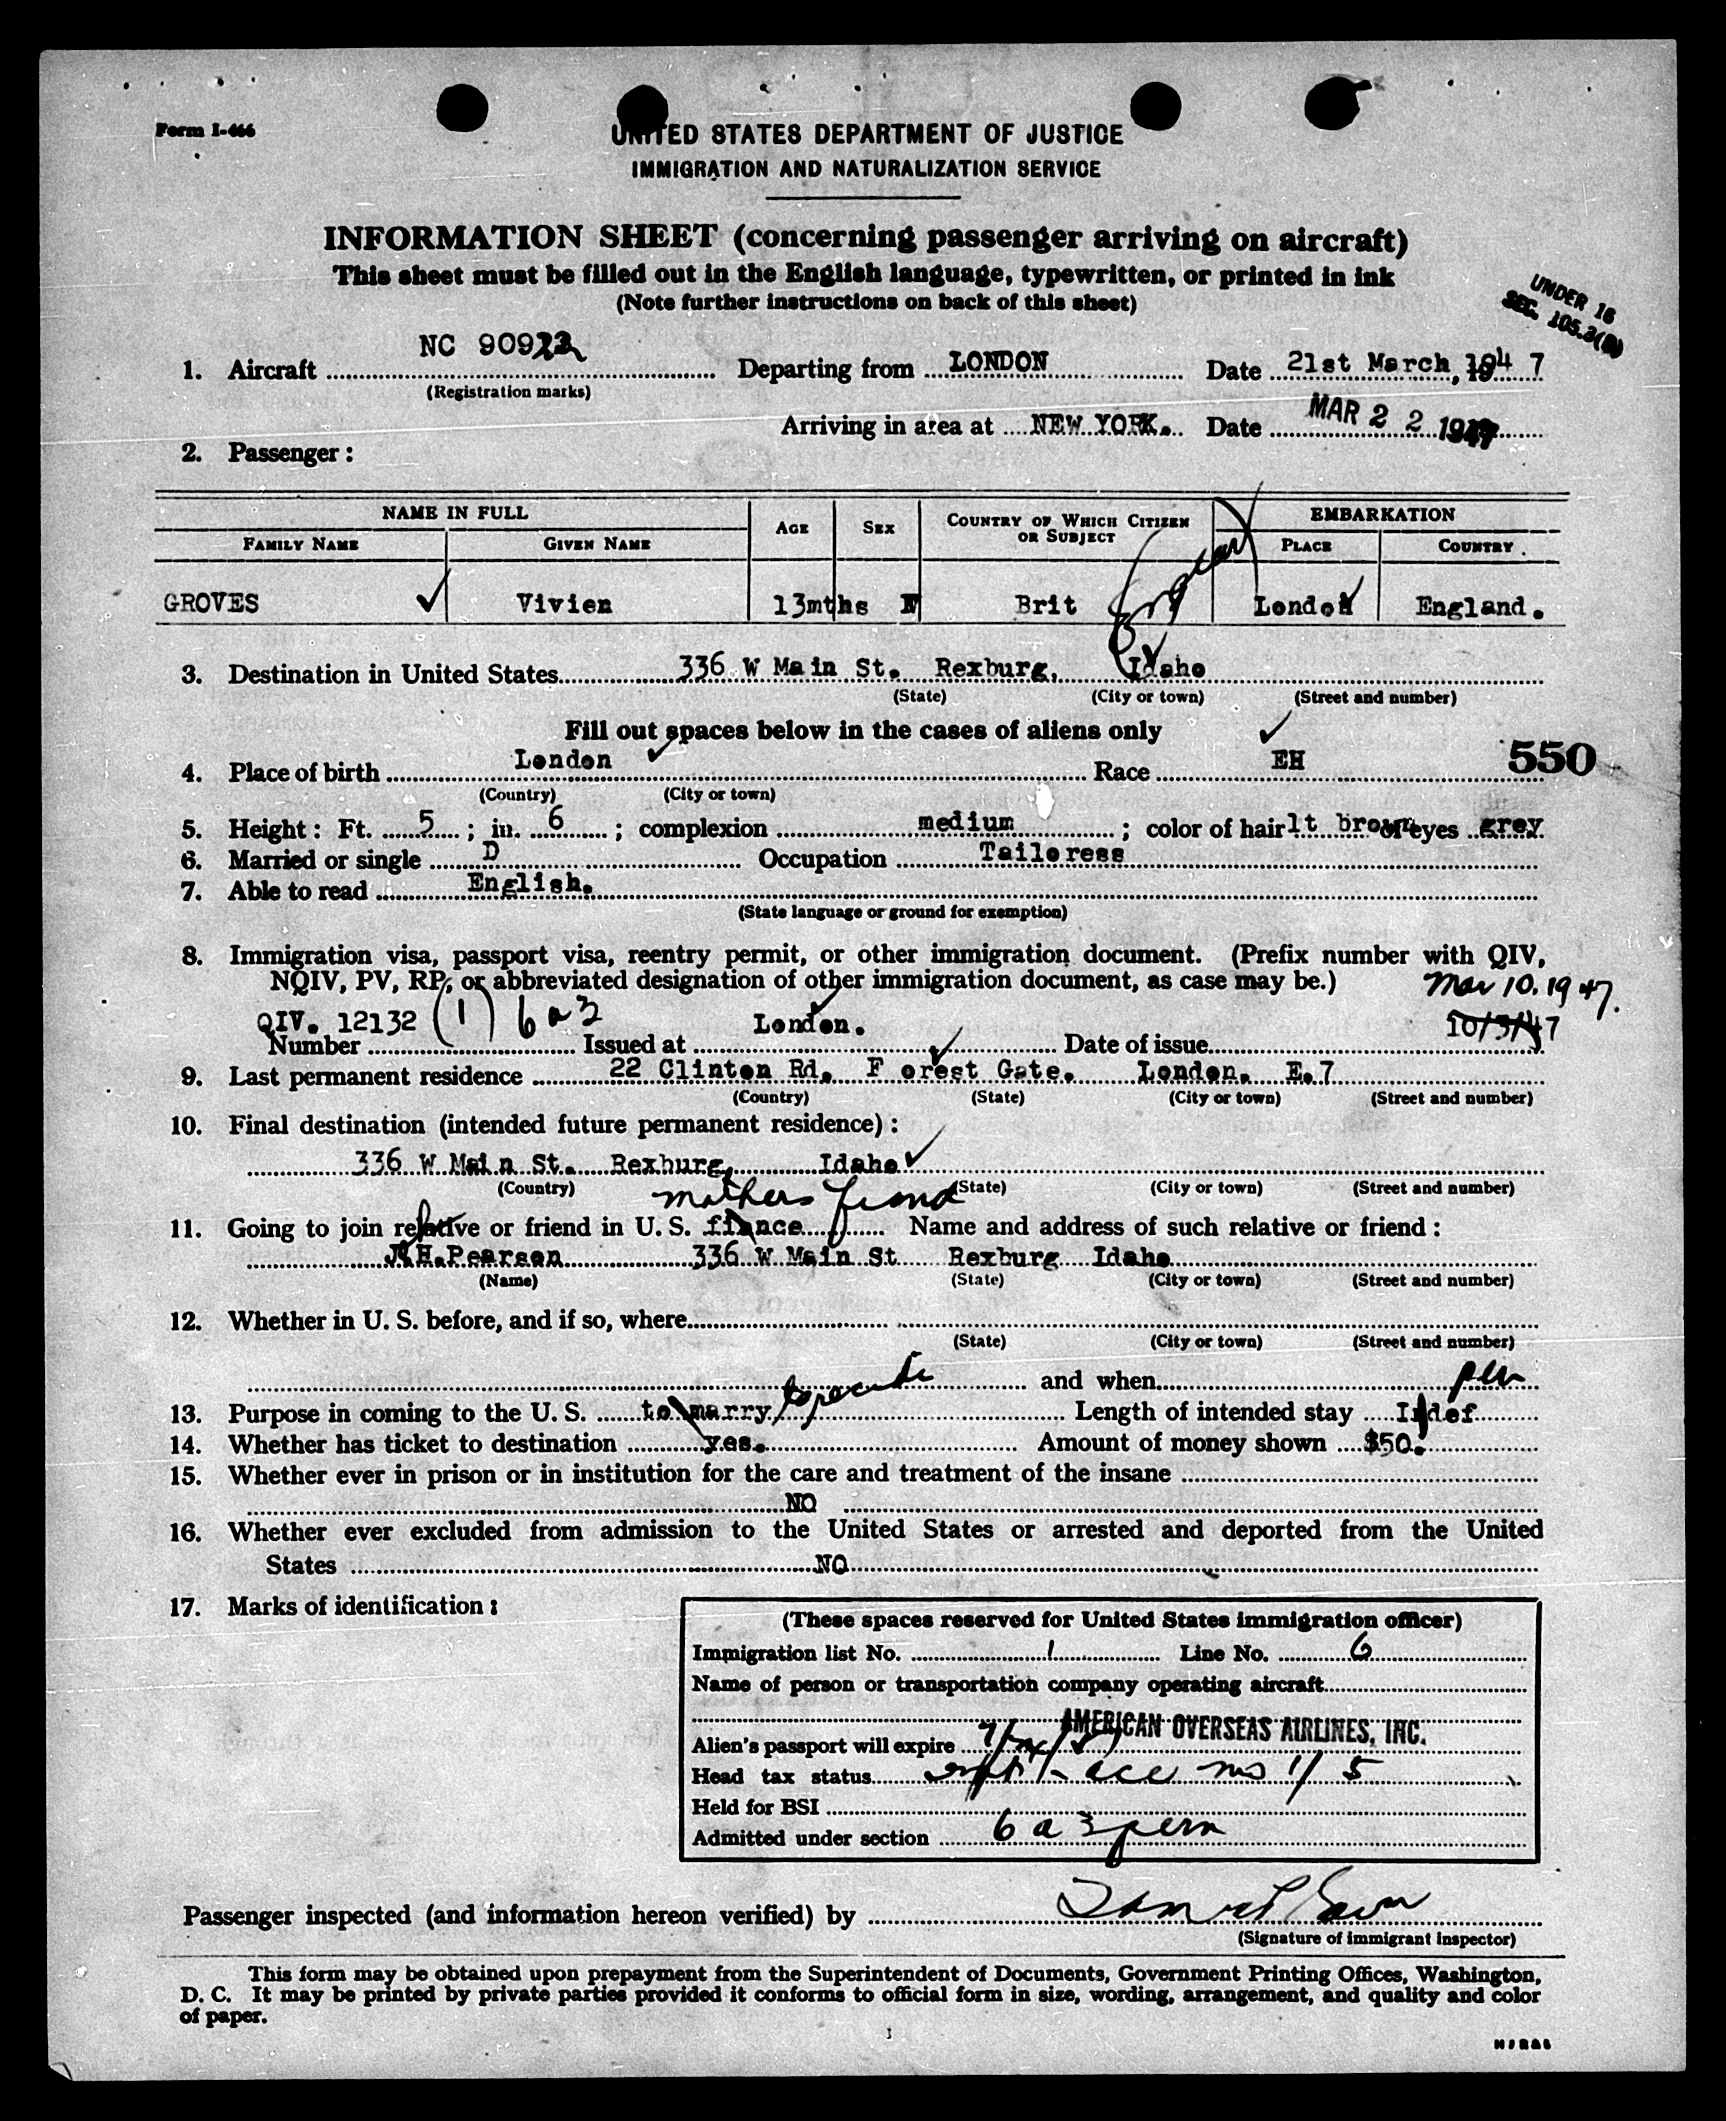 Form I-466
UNITED STATES DEPARTMENT OF JUSTICE
IMMIGRATION AND NATURALIZATION SERVICE
INFORMATION SHEET (concerning passenger arriving on aircraft)
This sheet must be filled out in the English language, typewritten, or printed in ink
(Note further instructions on back of this sheet)
UNDER 16
SEC. 105.3(B)
1. Aircraft NC 90922 Departing from LONDON Date 21st March, 1947
(Registration marks)
Arriving in area at NEW YORK. Date MAR 22 1947
2. Passenger:
NAME IN FULL AGE SEX COUNTRY OF WHICH CITIZEN OR SUBJECT EMBARKATION
FAMILY NAME GIVEN NAME PLACE COUNTRY
GROVES Vivien 13mths F Brit England London England.
3. Destination in United States 336 W Main St. Rexburg, Idaho
(State) (City or town) (Street and number)
Fill out spaces below in the cases of aliens only
550
4. Place of birth London Race EH
(Country) (City or town)
5. Height: Ft. 5; in. 6; complexion medium; color of hair lt brown of eyes grey
6. Married or single D Occupation Tailoress
7. Able to read English.
(State language or ground for exemption)
8. Immigration visa, passport visa, reentry permit, or other immigration document. (Prefix number with QIV,
NQIV, PV, RP, or abbreviated designation of other immigration document, as case may be.) Mar 10. 1947.
QIV. 12132 (1) 6 a 3 London. 10/3/47
Number Issued at Date of issue
9. Last permanent residence 22 Clinton Rd. F orest Gate. London. E.7
(Country) (State) (City or town) (Street and number)
10. Final destination (intended future permanent residence):
336 W Main St. Rexburg, Idaho
(Country) (State) (City or town) (Street and number)
mothers friend
11. Going to join relative or friend in U. S. fiance Name and address of such relative or friend:
H.Pearson 336 W Main St Rexburg Idaho
(Name) (State) (City or town) (Street and number)
12. Whether in U. S. before, and if so, where
(State) (City or town) (Street and number)
and when
13. Purpose in coming to the U. S. to marry to reside Length of intended stay Indef per
14. Whether has ticket to destination yes. Amount of money shown $50.
15. Whether ever in prison or in institution for the care and treatment of the insane
NO
16. Whether ever excluded from admission to the United States or arrested and deported from the United
States NO
17. Marks of identification:
(These spaces reserved for United States immigration officer)
Immigration list No. 1 Line No. 6
Name of person or transportation company operating aircraft
AMERICAN OVERSEAS AIRLINES, INC.
Alien's passport will expire
Head tax status acc no 1/5
Held for BSI
Admitted under section 6 a 3 perm
Passenger inspected (and information hereon verified) by
(Signature of immigrant inspector)
This form may be obtained upon prepayment from the Superintendent of Documents, Government Printing Offices, Washington,
D. C. It may be printed by private parties provided it conforms to official form in size, wording, arrangement, and quality and color
of paper.